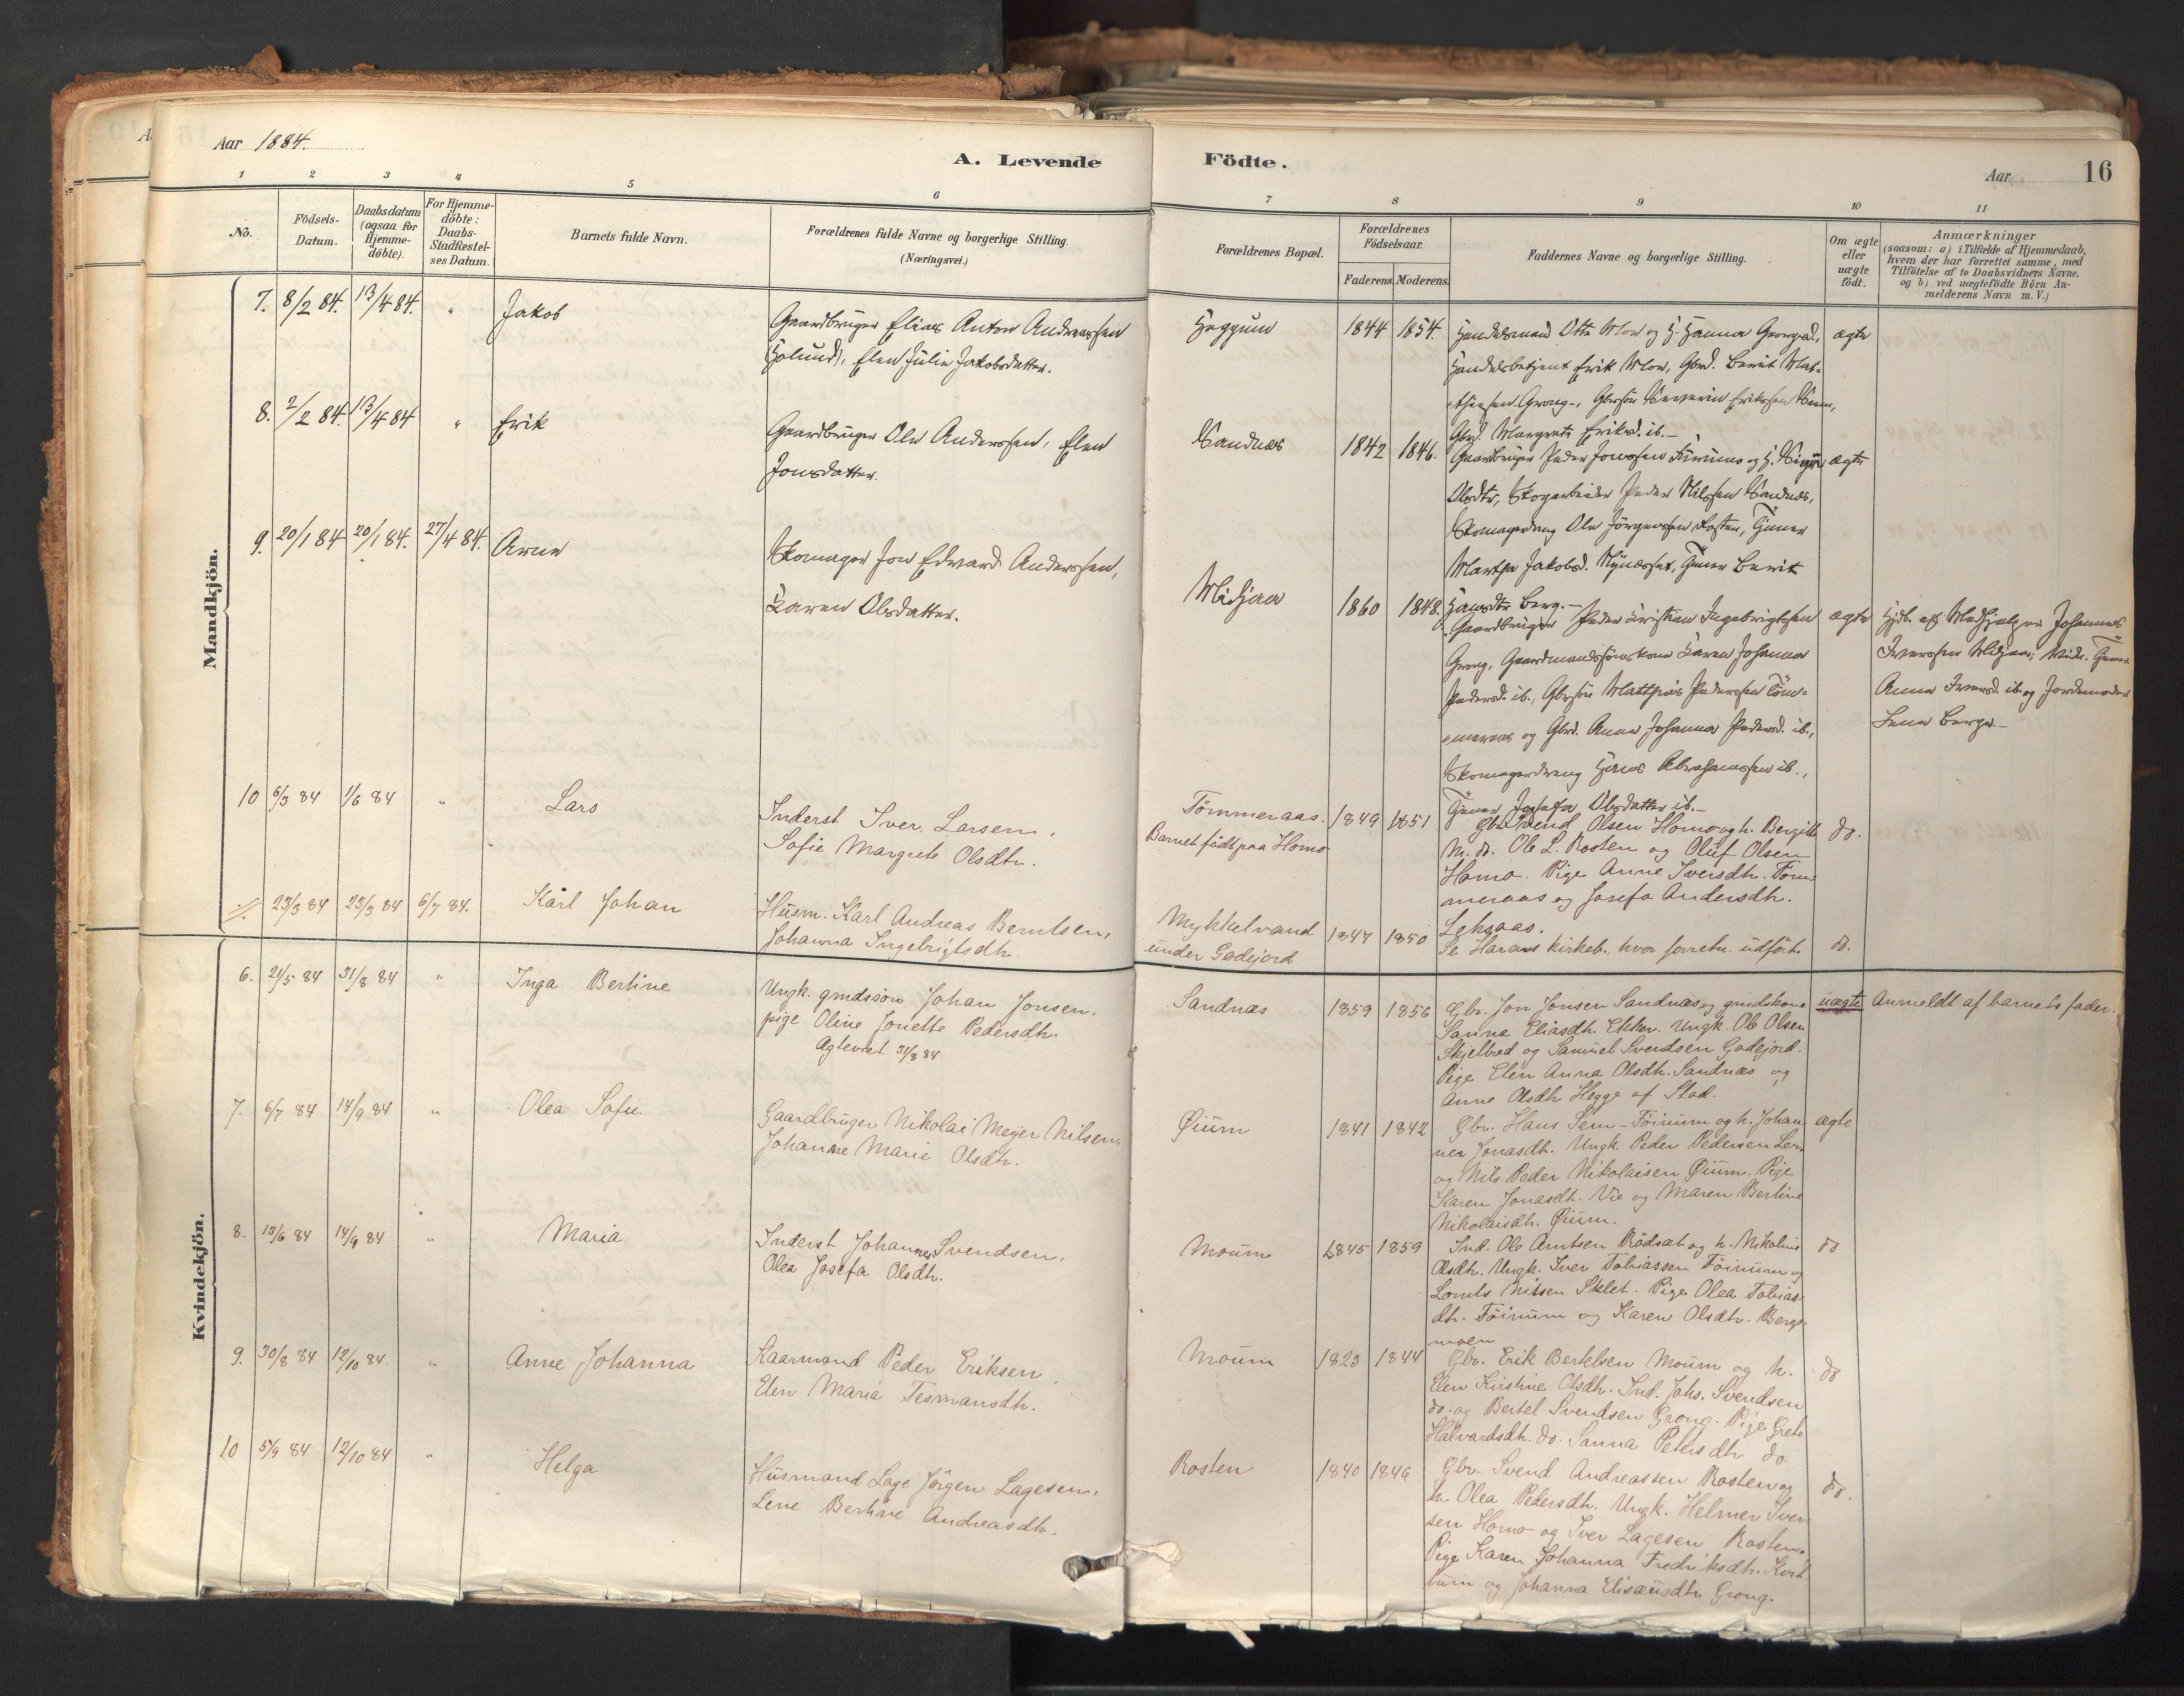 Aar 1884.
A. Levende
Födte.
Aar
16
1 2 3 4 5 6 7 8 9 10 11
No.
Födsels-
Datum.
Daabsdatum
(ogsaa for
Hjemme-
döbte).
For Hjemme-
döbte:
Daabs-
Stadfæstel-
ses Datum.
Barnets fulde Navn.
Forældrenes fulde Navne og borgerlige Stilling.
(Næringsvei.)
Forældrenes Bopæl.
Forældrenes
Födselsaar.
Faderens. Moderens.
Faddernes Navne og borgerlige Stilling.
Om ægte
eller
uægte
födt.
Anmærkninger
(saasom: a) i Tilfælde af Hjemmedaab,
hvem der har forrettet samme, med
Tilföielse af to Daabsvidners Navne.
og b) ved uægtefödte Börn An-
melderens Navn m. V.)
Mandkjön.
7. 8/2 84. 13/4 84. " Jakob
Gaardbruger Elias Anton Andreassen
(Holund), Elen Julie Jakobsdatter.
Heggum 1844 1854.
Handelsmand Otto Mow og H. Hanna Georgsd.,
Handelsbetjent Erik Mow, Gbrd. Berit Mat-
thiesen Grong, Gbrsön Severin Eriksen Seem,
Gbrd. Margrete Eriksd. ib.
ægte
8. 2/2 84. 13/4 84 " Erik
Gaardbruger Ole Anderssen, Elen
Jonsdatter.
Sandnæs 1842 1846.
Gaardbruger Peder Jonssen Furunes og H. Sigri
Olsdtr, Skogarbeider Peder Nilssen Sandnæs,
Skomagerdreng Ole Jörgenssen Rosten, Tjener
Martha Jakobsd. Rynæsset, Tjener Berit
Hansdtr Berg.
ægte
9. 20/1 84 20/1 84. 27/4 84. Arne
Skomager Jon Edvard Anderssen,
Karen Olsdatter.
Midjaa 1860 1848.
Gaardbruger Peder Kristian Ingebrigtssen
Grong, Gaardmandssönskone Karen Johanna
Pedersd. ib., Gbrsön Matthias Pederssen Töm-
meraas og Gbrd. Anna Johanna Pedersd. ib.,
Skomagerdreng Hans Abrahamssen ib.,
Tjener Josefa Olsdatter ib.
ægte
Hjdb. af Medhjælper Johannes
Iverssen Midjaa; Vidr. Tjener
Anna Iversd. ib. og Jordemoder
Lena Berge.
10 6/3 84 1/6 84 " Lars
Inderst Iver Larsen,
Sofie Margrete Olsdtr.
Tømmeraas.
Barnet födt paa Homo
1849 1851
Gbr. Svend Olsen Homo og h. Bergitte
M. dr. Ole L. Rosten og Oluf Olsen
Homo. Pige Anne Iversdtr. Töm-
meraas og Josefa Andersdtr.
Leksaas.
do.
11. 23/3 84 23/3 84 6/7 84. Karl Johan
Husm. Karl Andreas Berntsen,
Johanna Ingebrigtsdtr.
Mykkelvand
under Godejord
1847 1850
Se Harans kirkeb., hvor forretn. udfört.
do.
Kvindekjön.
6. 21/5 84 31/8 84 " Inga Berline
Ungk. gmdssøn Johan Jonsen.
pige Oline Jonette Pedersdtr.
Ægteviet 31/8 84
Sandnæs 1859 1856
Gbr. Jon Jonsen Sandnæs og gmdskone
Sanna Eliasdtr. Ekker. Ungk. Ole Olsen
Skjelbred og Samuel Svendsen Godejord.
Pige Elen Anna Olsdtr. Sandnæs og
Anne Olsdtr. Hegge af Stod.
uægte
Anmeldt af barnets fader.
7. 6/7 84 14/9 84 " Olea Sofie
Gaardbruger Nikolai Meyer Nilsen,
Johanne Marie Olsdtr.
Øium 1841 1842
Gbr. Hans Sem - Föinum og h. Johan-
na Jonasdtr. Ungk. Peder Pedersen Lern
og Nils Peder Nikolaisen Øium. Pige
Karen Jonasdtr. Vie og Maren Bertine
Nikolaisdtr. Øium.
ægte
8. 19/6 84 14/9 84 " Maria
Inderst Johannes Svendsen,
Olea Josefa Olsdtr.
Moum 1845 1859
Ind. Ole Arntsen Rödsæt og h. Nikoline
Olsdtr. Ungk. Iver Tobiassen Föinum og
Lornts Nilsen Sklet. Pige Olea Tobias-
dtr. Föinum og Karen Olsdtr. Berge-
moen
do
9. 30/8 84 12/10 84. " Anne Johanna
Kaarmand Peder Eriksen,
Elen Maria Tesmansdtr.
Moum 1823 1844
Gbr. Erik Bertelsen Moum og h.
Elen Kirstine Olsdtr. Ind. Johs. Svendsen
do. og Bertel Svendsen Grong. Pige Grete
Halvardsdtr. do. Sanna Petersdtr. do.
do
10 5/9 84 12/10 84 " Helga
Husmand Lage Jörgen Lagesen,
Lene Bertine Andreasdtr.
Rosten 1840 1846
Gbr. Svend Andreassen Rosten og
h. Olea Pedersdtr. Ungk. Helmer Iver-
sen Homo og Iver Lagesen Rosten.
Pige Karen Johanna Fredriksdtr. Kvit-
um og Johanna Elisæusdtr Grong.
do.